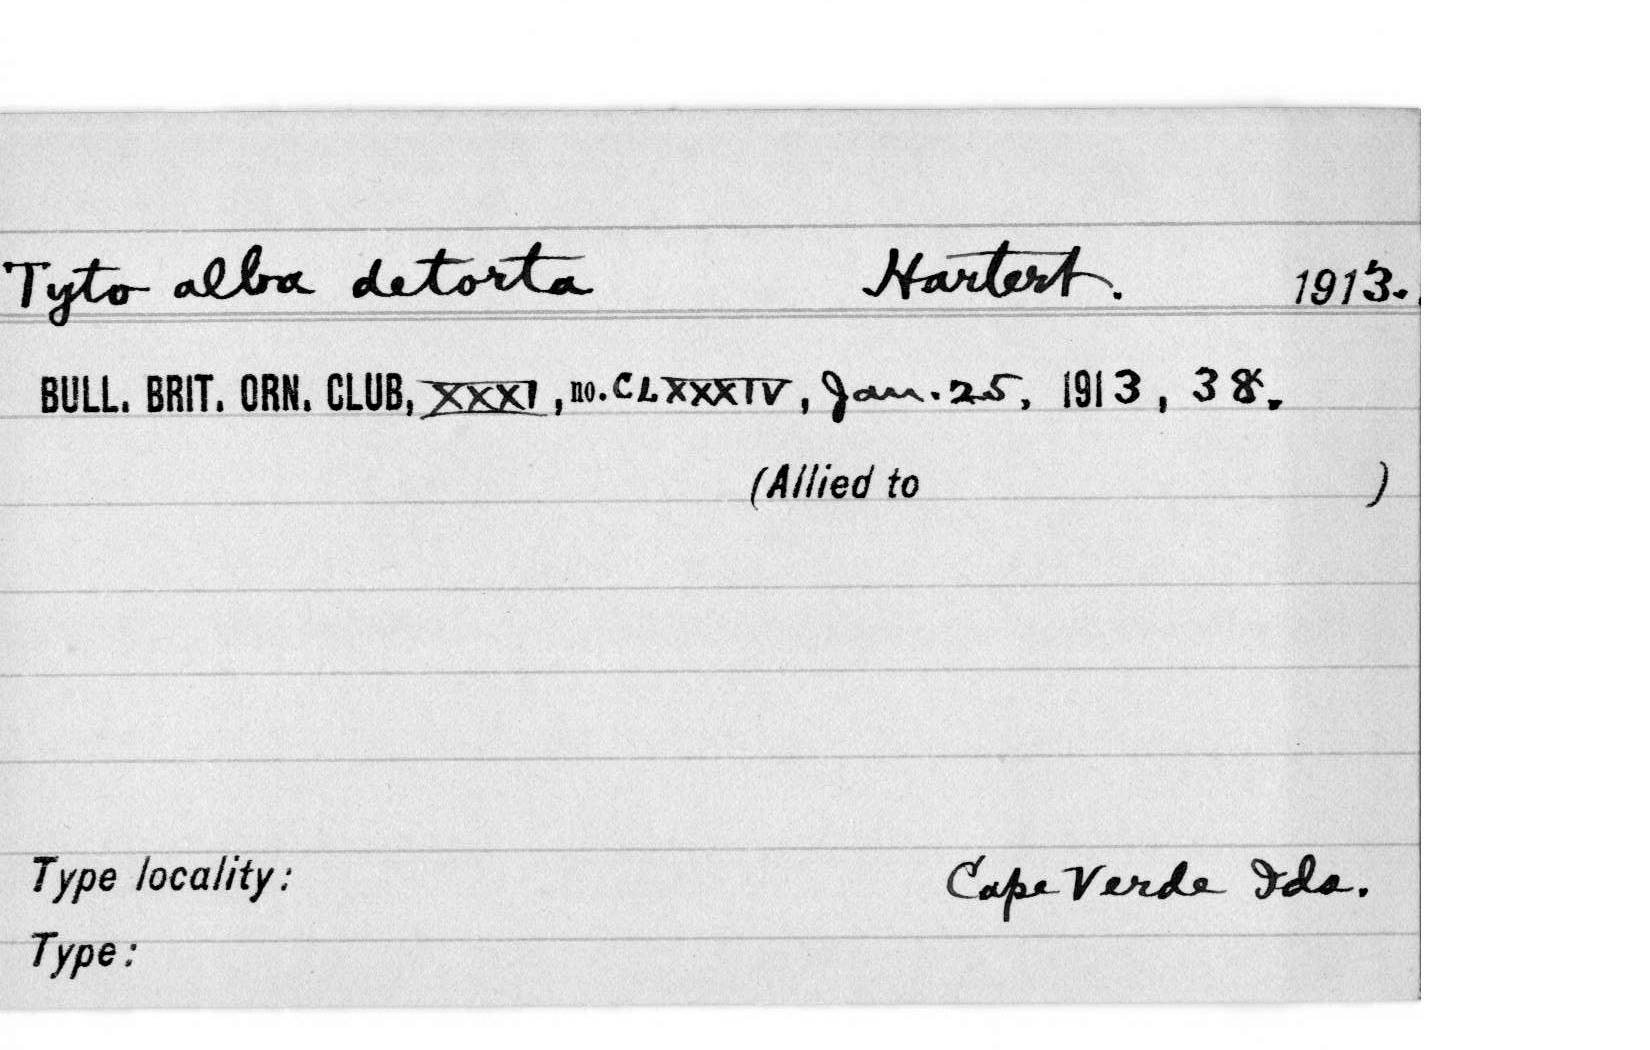 Tyto alba detorta Hartert. 1913.
BULL. BRIT. ORN. CLUB, XXXI, no. CLXXXIV, Jan. 25, 1913, 38.
(Allied to )
Type locality: Cape Verde Ids.
Type: